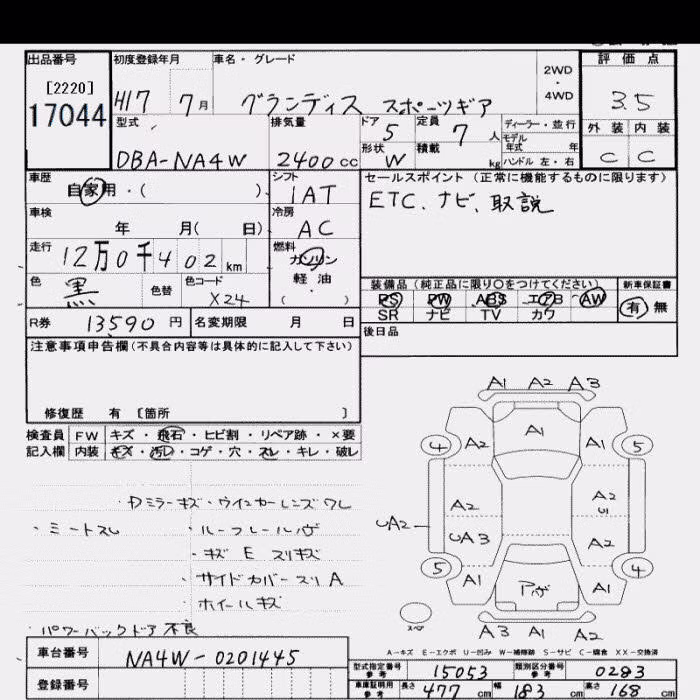 出品番号 初度登録年月 車名・グレード 2WD ・ 4WD 評価点
[2220]
17044 H17 7月 グランディス スポーツギア 3.5
型式 排気量 ドア 5 定員 7人 ディーラー・並行 外装 内装
モデル年式 年
DBA-NA4W 2400cc 形状 W 積載 kg ハンドル 左・右 C C
車歴 シフト セールスポイント (正常に機能するものに限ります)
自家用・( ) IAT ETC、ナビ、取説
車検 冷房
年 月( 日) AC
走行 燃料
12万0千402km ガソリン
色 黒 色替 色コード X24 軽・油 ( )
装備品 (純正品に限り○をつけてください) 新車保証書
PS PW ABS エアB AW 有 無
R券 13,590円 名変期限 月 日 SR ナビ TV カワ
後日品
注意事項申告欄(不具合内容等は具体的に記入して下さい)
修復歴 有 [箇所 ]
検査員 FW キズ・飛石・ヒビ割・リペア跡・×要
記入欄 内装 キズ・汚レ・コゲ・穴・スレ・キレ・破レ
A1 A2 A3
④ A2 A1 A1 ⑤
・Dミラーキズ・ウインカーレンズワレ
・ミートスレ
・キズ E スリキズ
・サイドカバースリA
・ホイールキズ
・パワーバックドア不良
A2 A2 U1
UA2 UA3 A2
⑤ A1 A1 ④
A3 A1 A2
A-キズ E-エクボ U-凹み W-補修跡 S-サビ C-腐食 XX-交換済
車台番号 NA4W-0201445
型式指定番号参考 15053 類別区分番号参考 0283
登録番号
車庫証明用参考 長さ 477cm 幅 183cm 高さ 168cm